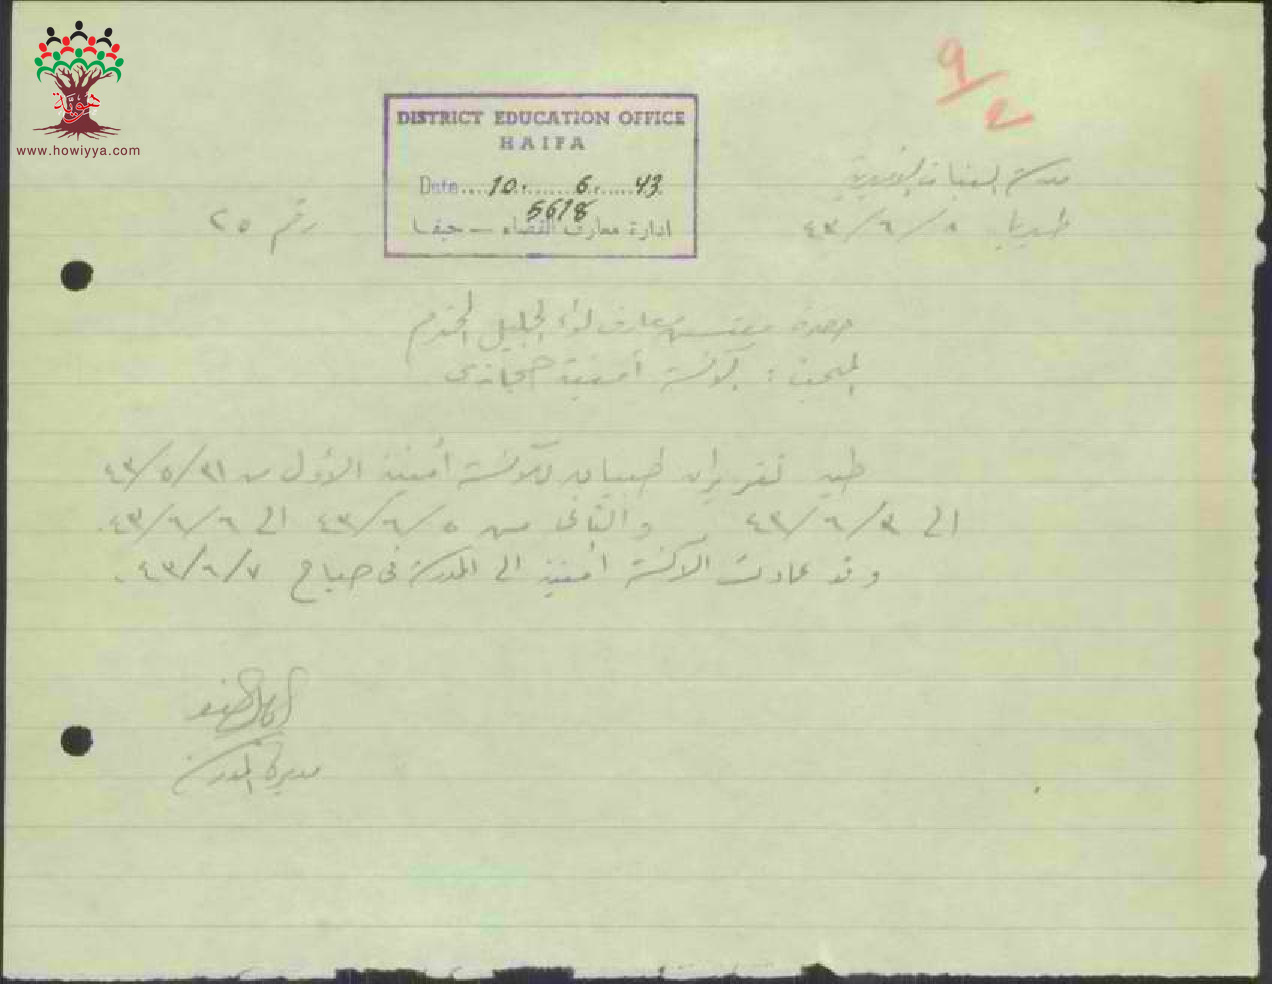 هوية
www.howiyya.com
٩/٤
DISTRICT EDUCATION OFFICE
HAIFA
Date....10.......6......43
5618
ادارة معارف القضاء — حيفا
مدرسة البنات الاميرية
طبريا ٨/٦/٤٣
رقم ٢٥
حضرة مفتش معارف لواء الجليل المحترم
المبحث : الآنسة أمينة حجازي
طيه تقريران طبيان للآنسة أمينة الأول من ٣١/٥/٤٣
الى ٣/٦/٤٣ ، والثاني من ٥/٦/٤٣ الى ٦/٦/٤٣.
وقد عادت الآنسة أمينة الى المدرسة في صباح ٧/٦/٤٣.
مديرة المدرسة